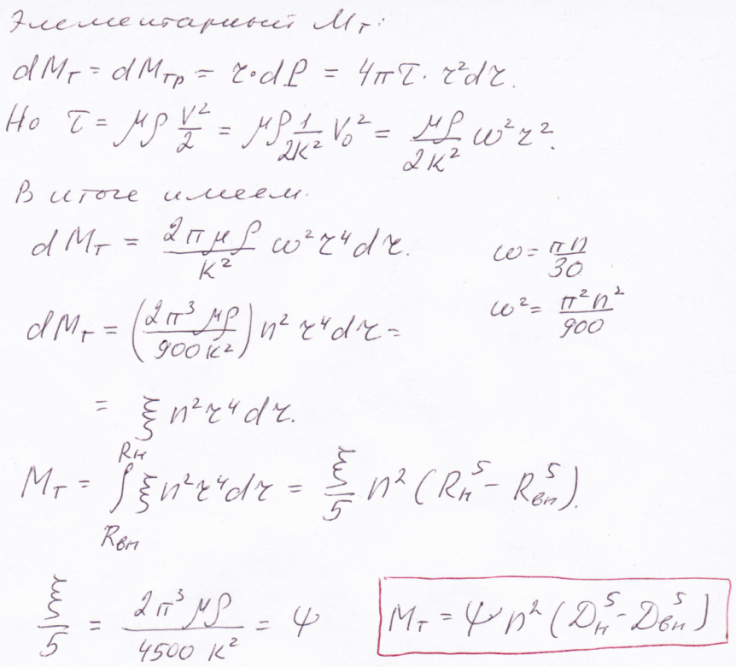 Элементарный Mт:
dMт = dMтр = r·dP = 4πτ·r²dr.
Но τ = μρ V²/2 = μρ 1/2K² V₀² = μρ/2K² ω²r².
В итоге имеем.
dMт = 2πμρ/K² ω²r⁴dr. ω = πn/30
dMт = (2π³μρ/900K²) n²r⁴dr = ω² = π²n²/900
= ξn²r⁴dr.
Mт = ∫ Rвн Rн ξn²r⁴dr = ξ/5 n² (Rн⁵ - Rвн⁵).
ξ/5 = 2π³μρ/4500 K² = Ψ Mт = Ψn² (Dн⁵ - Dвн⁵)